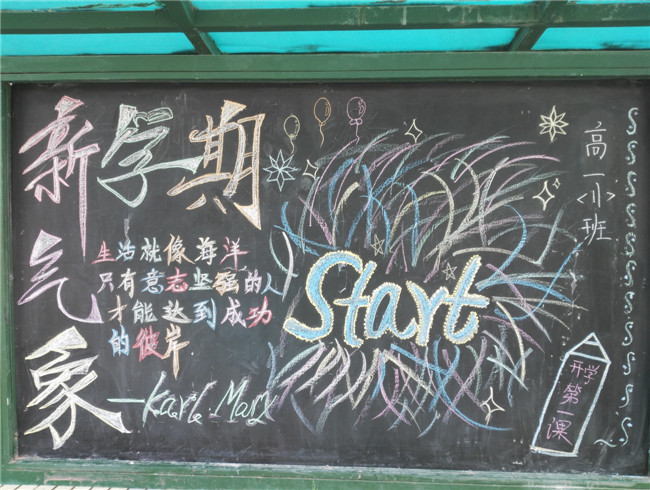 新学期
气
象
生活就像海洋
只有意志坚强的人
才能达到成功
的彼岸
—Karl Marx
Start
高一〈小〉班
开学
第一课